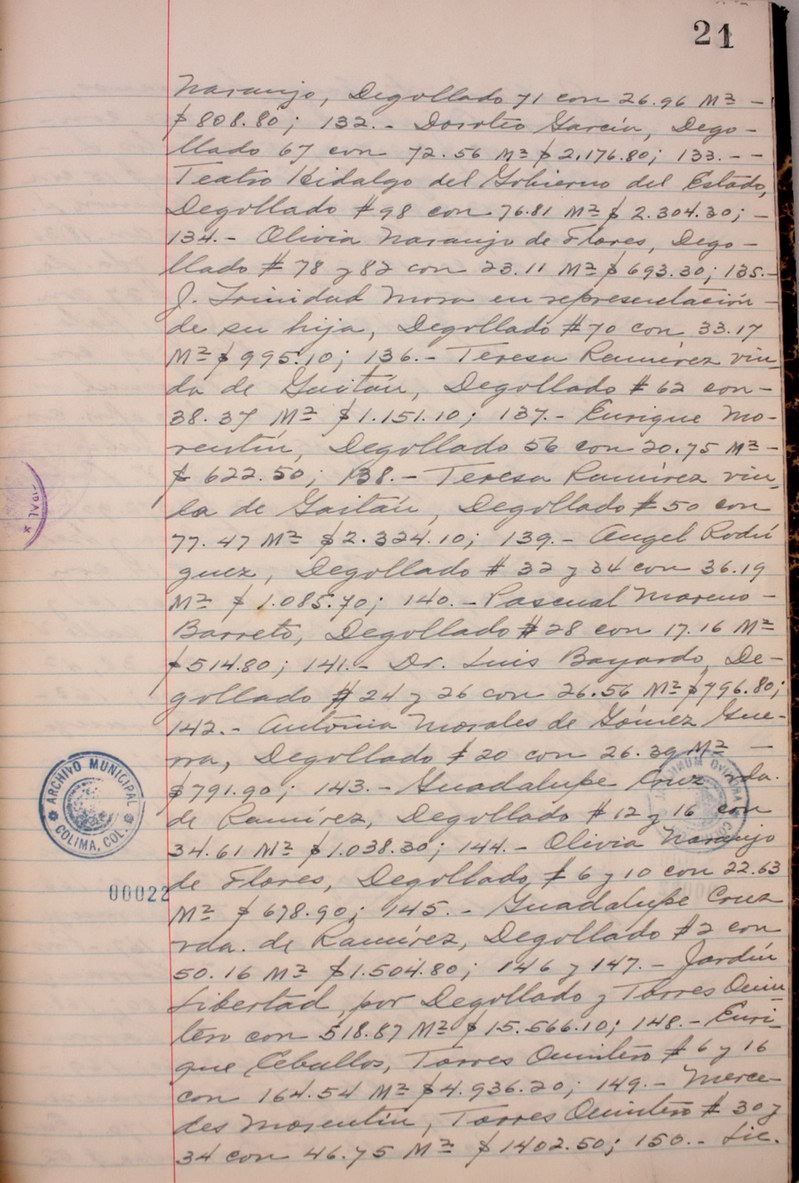 21
Naranjo, Degollado 71 con 26.96 M² -
$808.80; 132.- Doroteo García, Dego-
llado 67 con 72.56 M² $2,176.80; 133.- -
Teatro Hidalgo del Gobierno del Estado,
Degollado #98 con 76.81 M² $2.304.30; -
134.- Olivia Naranjo de Flores, Dego-
llado # 78 y 82 con 23.11 M² $693.30; 135.-
J. Trinidad Mora en representación -
de su hija, Degollado #70 con 33.17
M² $995.10; 136.- Teresa Ramírez viu_
da de Gaitán, Degollado # 62 con -
38.37 M² $1.151.10; 137.- Enrique Mo-
rentín, Degollado 56 con 20.75 M² -
$622.50; 138.- Teresa Ramírez viu_
da de Gaitán, Degollado #50 con
77.47 M² $2.324.10; 139.- Angel Rodrí
guez, Degollado # 32 y 34 con 36.19
M² $1.085.70; 140.- Pascual Moreno -
Barreto, Degollado #28 con 17.16 M²
$514.80; 141.- Dr. Luis Bayardo, De-
gollado # 24 y 26 con 26.56 M² $796.80;
142.- Antonia Morales de Gómez Gue-
rra, Degollado # 20 con 26.39 M² -
$791.90; 143.- Guadalupe Cruz vda.
de Ramírez, Degollado #12 y 16 con
34.61 M² $1.038.30; 144.- Olivia Naranjo
de Flores, Degollado # 6 y 10 con 22.63
M² $678.90; 145.- Guadalupe Cruz
vda. de Ramírez, Degollado #2 con
50.16 M² $1.504.80; 146 y 147.- Jardín
Libertad, por Degollado y Torres Quin
tero con 518.87 M² $15.566.10; 148.- Enri-
que Ceballos, Torres Quintero # 6 y 16
con 164.54 M² $4.936.20; 149.- Merce-
des Morentín, Torres Quintero # 30 y
34 con 46.75 M² $1402.50; 150.- Lic.
IPAL *
ARCHIVO MUNICIPAL
COLIMA, COL.
00022